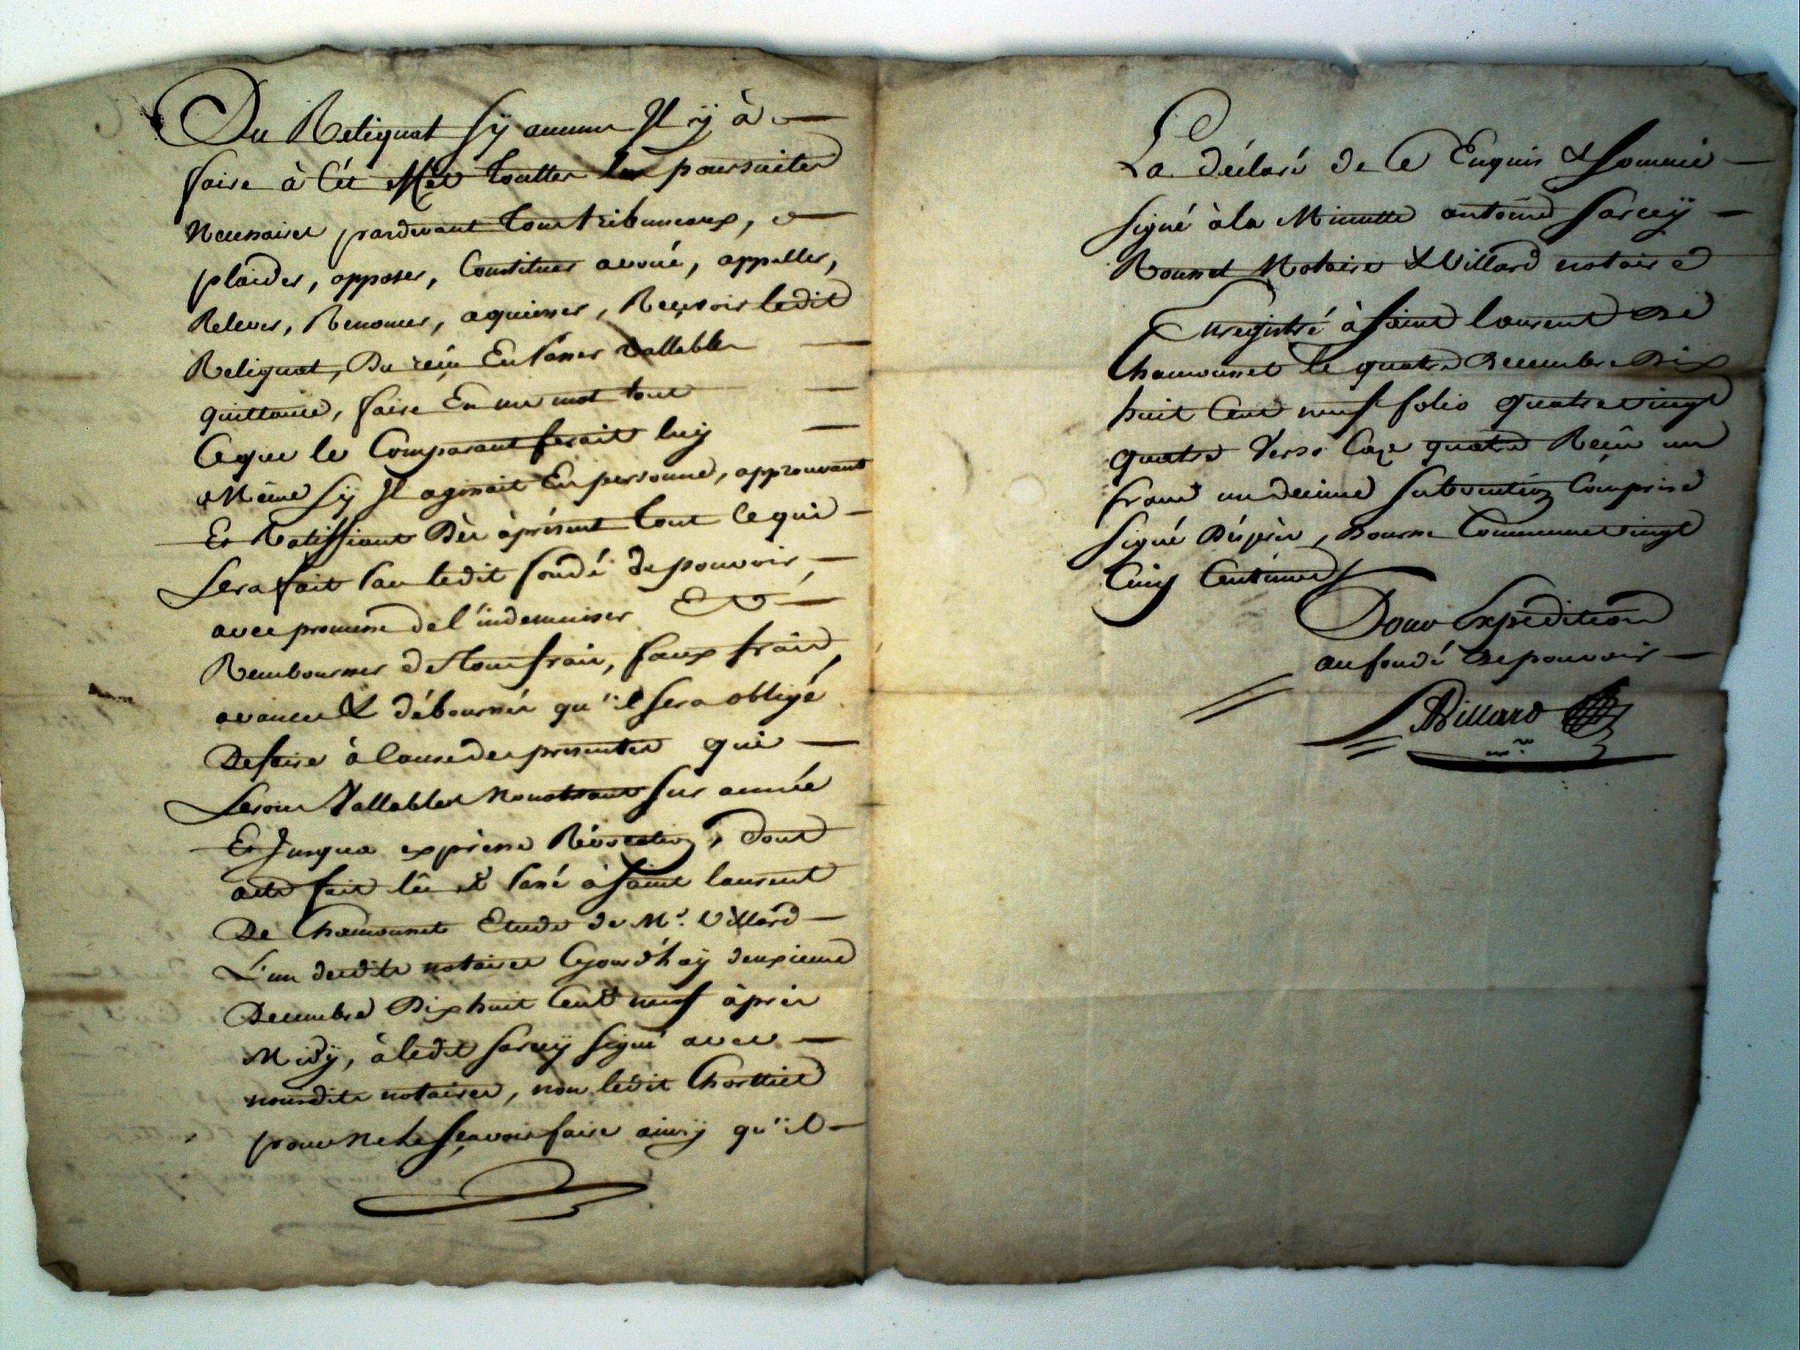 Du Reliquat sÿ aucun Il ÿ à
faire à Cét effet touttes les poursuites
Necessaires pardevant tous tribuneaux,
plaider, opposer, Constituer avoué, appeller,
Relever, Renoncer, aquiesser, Reçevoir ledit
Reliquat, Du reçu En passer Vallables
quittance, faire En un mot tout
Ceque le Comparant ferait luÿ
Même sÿ Il agissait En personne, approuvant
Et Ratiffiant Dès àprésent tout ce qui
Sera fait par ledit fondé de pouvoir,
avec promesse de l'indemniser Et
Rembourser de tous frais, faux frais,
avances & déboursés qu'il sera obligé
De faire à Cause des presentes qui
Seront Vallables Nonobstant sur année
Et Jusqua expresse Révocation, Dont
acte fait lû et passé à Saint laurent
De Chamousset Etude de Me. Villard
L'un desdits notaires Cejourd'huÿ deuxieme
Decembre Dix huit Cent neuf àprès
Midÿ, à ledit Sarcey signé avec
nousdits notaires, non ledit Chorttiet
pour ne le sçavoir faire ainsÿ qu'il
La déclaré de Ce Enquis & sommé
signé à la Minutte antoine Sarcey
Rousset Notaire & Villard notaire
Enregistré à Saint laurent De
Chamousset le quatre Decembre Dix
huit Cent neuf folio quatre vingt
quatre Verso Caze quatre Reçu un
franc un Decime subvention Comprise
signé Déspèr, Bourse Commune vingt
Cinq Centimes
Pour Expédition
au fondé de pouvoir
Villard
nre